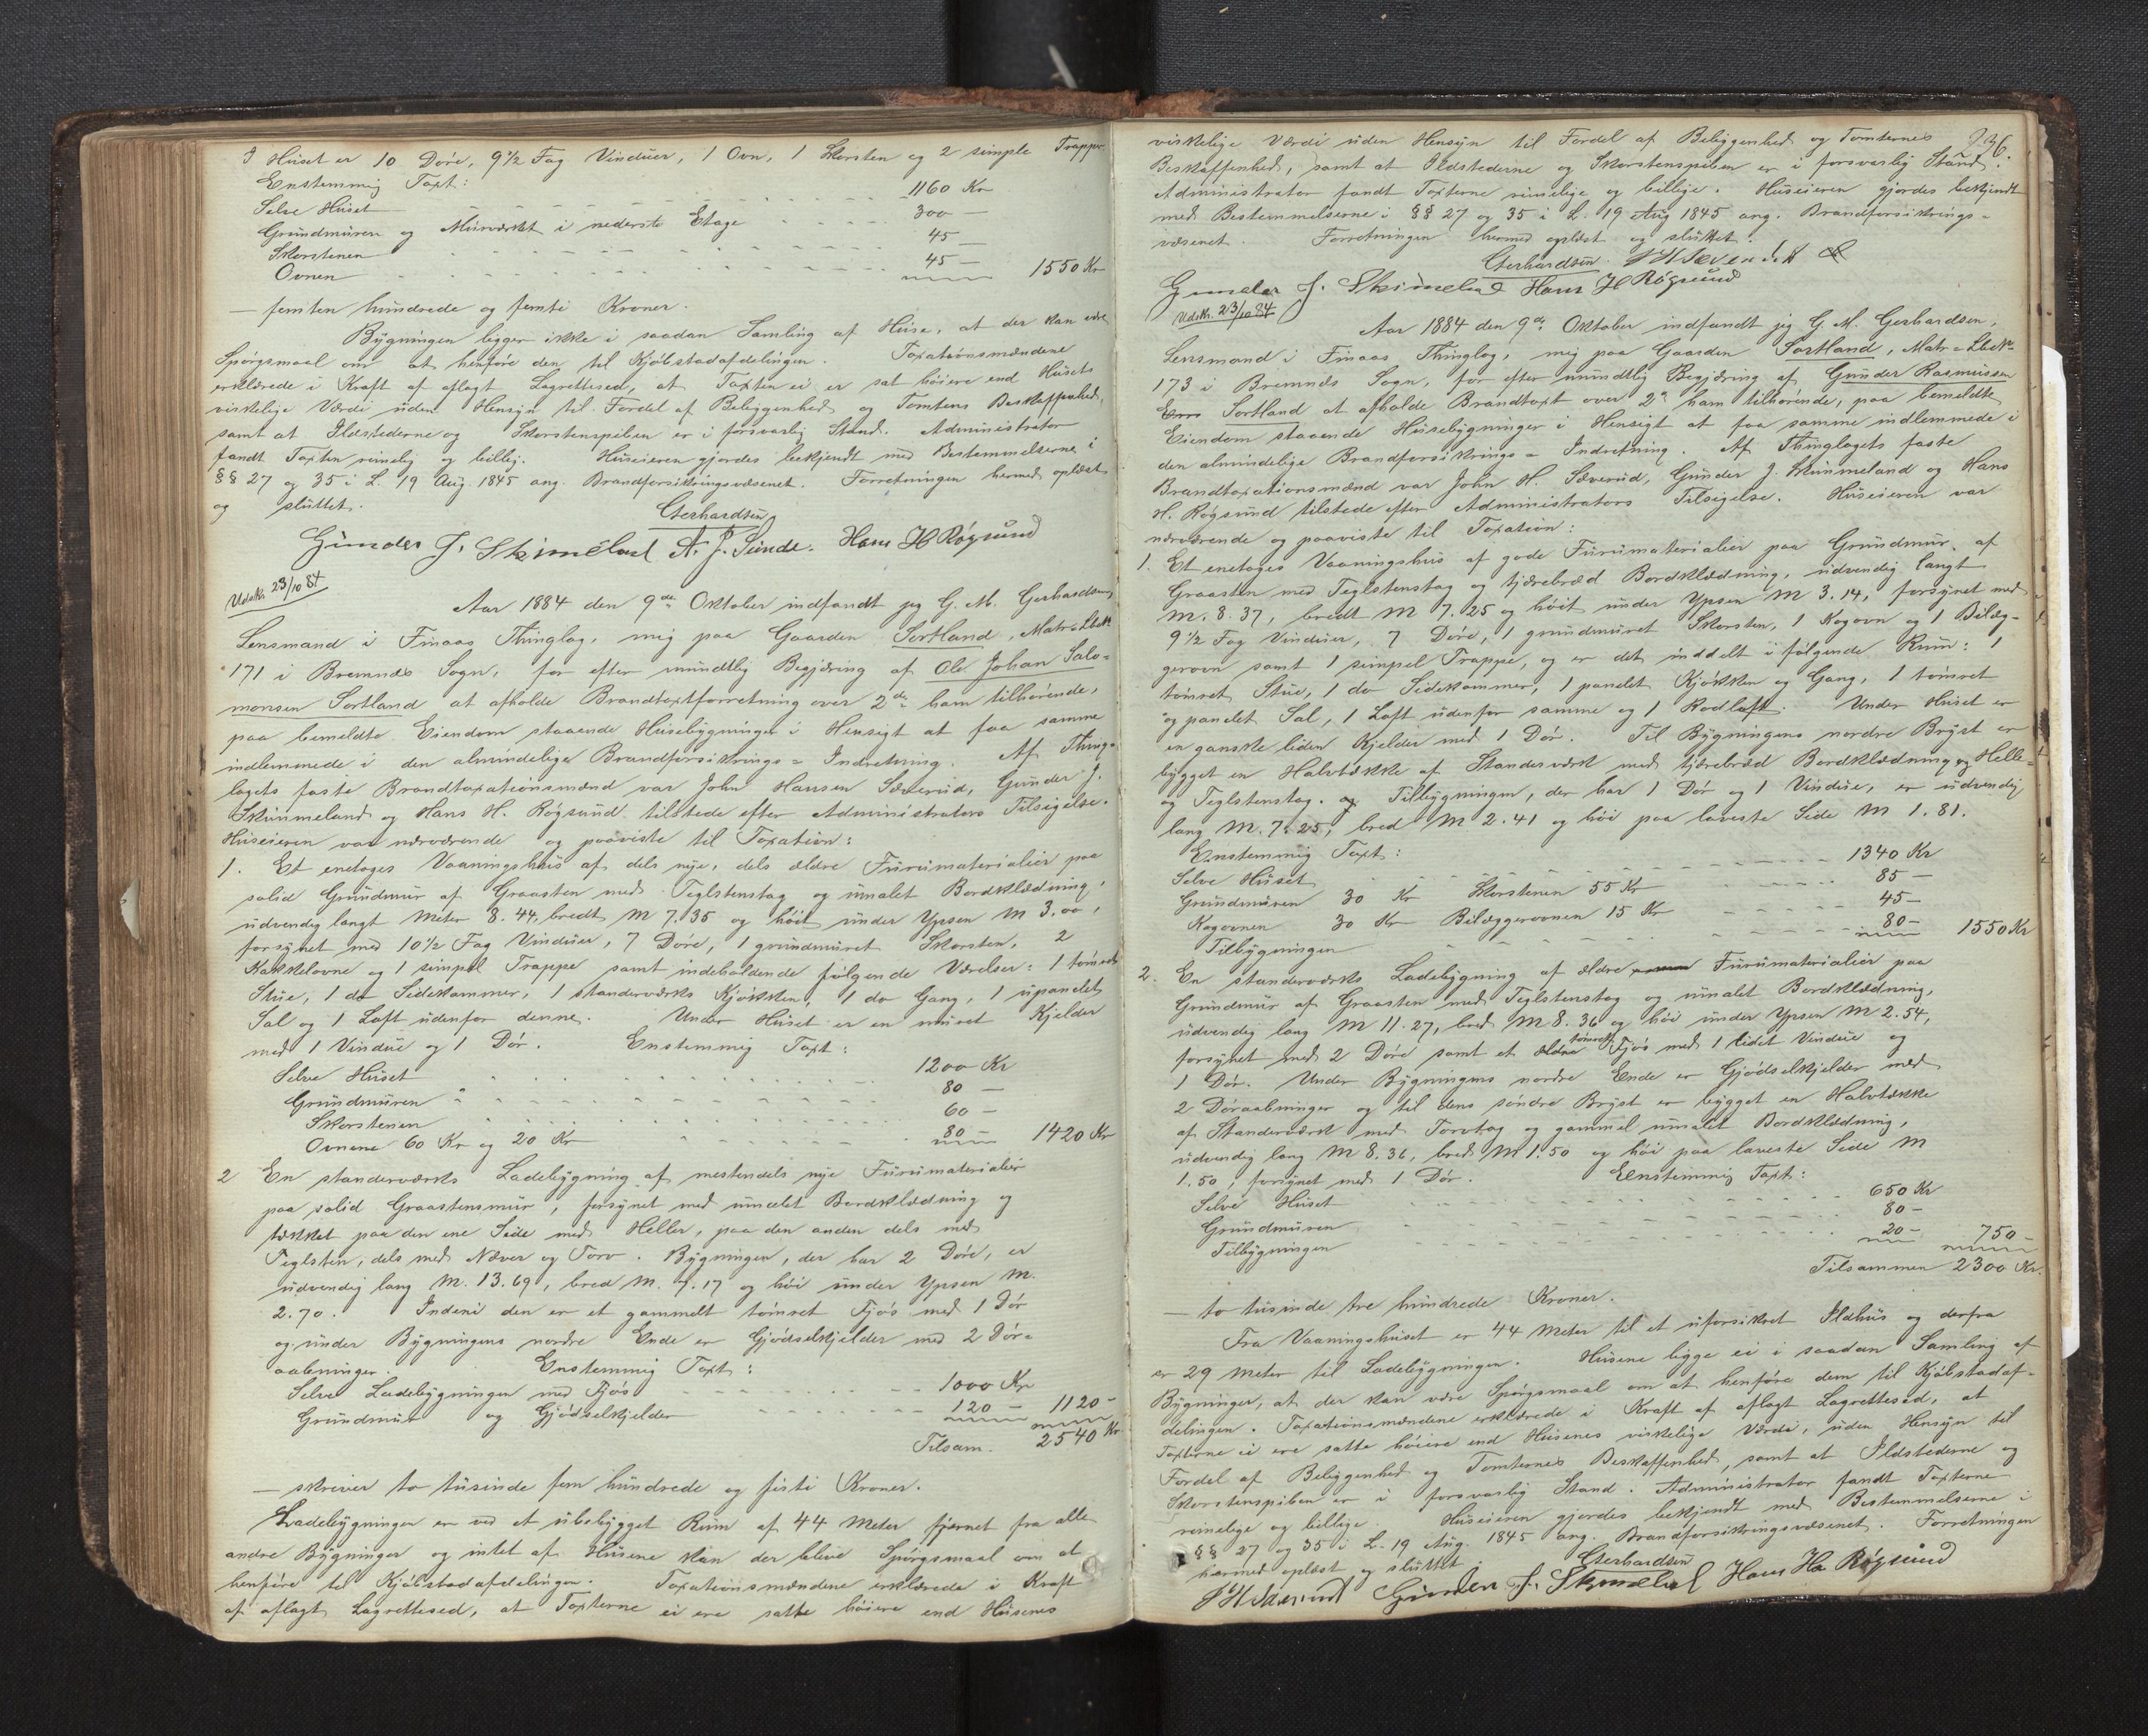 I Huset er 10 Døre, 9½ Fag Vinduer, 1 Ovn, 1 Skorsten og 2 simple Trapper.
Enstemmig Taxt:
Selve Huset 1160 Kr
Grundmuren og Murværket i nederste Etage 300 —
Skorstenen 45 —
Ovnen 45 — 1550 Kr
— femten hundrede og femti Kroner.
Bygningen ligger ikke i saadan Samling af Huse, at der kan være
Spørgsmaal om at henføre den til Kjøbstadafdelingen. Taxationsmændene
erklærede i Kraft af aflagt Lagrettesed, at Taxten ei er sat høiere end Husets
virkelige Værdi uden Hensyn til Fordel af Beliggenhed og Tomtens Beskaffenhed,
samt at Ildstederne og Skorstenspiben er i forsvarlig Stand. Administrator
fandt Taxten rimelig og billig. Huseieren gjordes bekjendt med Bestemmelserne i
§§ 27 og 35 i L. 19 Aug. 1845 ang. Brandforsikringsvæsenet. Forretningen hermed oplæst
og sluttet.
Gerhardsen
Gunder J. Skimeland A. J. Sunde. Hans H Røgsund
Udskr. 23/10 84
Aar 1884 den 9de Oktober indfandt jeg G. M. Gerhardsen,
Lensmand i Finaas Thinglag, mig paa Gaarden Sortland, Matr=Lbek
171 i Bremnæs Sogn, for efter mundtlig Begjæring af Ole Johan Salo=
monsen Sortland at afholde Brandtaxtforretning over 2de ham tilhørende,
paa bemeldte Eiendom staaende Husebygninger i Hensigt at faa samme
indlemmede i den almindelige Brandforsikrings=Indretning. Af Thing=
lagets faste Brandtaxationsmænd var John Hansen Sæverud, Gunder J.
Skimmeland og Hans H. Røgsund tilstede efter Administrators Tilsigelse.
Huseieren var nærværende og paaviste til Taxation:
1. Et enetages Vaaningshus af dels nye, dels ældre Furumaterialier paa
solid Grundmur af Graasten med Teglstenstag og umalet Bordklædning,
udvendig langt Meter 8.44, bredt M 7.35 og høit under Ypsen M 3.00,
forsynet med 10½ Fag Vinduer, 7 Døre, 1 grundmuret Skorsten, 2
Kakkelovne og 1 simpel Trappe samt indeholdende følgende Værelser: 1 tømret
Stue, 1 do Sidekammer, 1 standerværks Kjøkken, 1 do Gang, 1 upanelet
Sal og 1 Loft udenfor denne. Under Huset er en muret Kjelder
med 1 Vindue og 1 Dør. Enstemmig Taxt:
Selve Huset 1200 Kr
Grundmuren 80 —
Skorstenen 60 —
Ovnene 60 Kr og 20 Kr 80 — 1420 Kr
2 En standerværks Ladebygning af mestendels nye Furumaterialier
paa solid Graastensmur, forsynet med umalet Bordklædning og
tækket paa den ene Side med Heller, paa den anden dels med
Teglsten, dels med Næver og Torv. Bygningen, der har 2 Døre, er
udvendig lang M. 13.69, bred M. 7.17 og høi under Ypsen M.
2.70. Indeni den er et gammelt tømret Fjøs med 1 Dør
og under Bygningens nordre Ende er Gjødselkjelder med 2 Dør=
aabninger. Enstemmig Taxt:
Selve Ladebygningen med Fjøs 1000 Kr
Grundmur og Gjødselkjelder 120 — 1120 —
Tilsam. 2540 Kr
— skriver to tusinde fem hundrede og firti Kroner.
Ladebygningen er ved et ubebygget Rum af 44 Meter fjernet fra alle
andre Bygninger og intet af Husene kan der blive Spørgsmaal om at
henføre til Kjøbstadafdelingen. Taxationsmændene erklærede i Kraft
af aflagt Lagrettesed, at Taxterne ei ere satte høiere end Husenes
236.
virkelige Værdi uden Hensyn til Fordel af Beliggenhed og Tomternes
Beskaffenhed, samt at Ildstederne og Skorstenspiben er i forsvarlig Stand.
Administrator fandt Taxterne rimelige og billige. Huseieren gjordes bekjendt
med Bestemmelserne i §§ 27 og 35 i L. 19 Aug 1845 ang. Brandforsikrings=
væsenet. Forretningen hermed oplæst og sluttet.
Gerhardsen
Gunder J. Skimeland Hans H Røgsund
Udskr. 23/10 84
Aar 1884 den 9de Oktober indfandt jeg G M. Gerhardsen,
Lensmand i Finaas Thinglag, mig paa Gaarden Sortland, Matr=Lbek
173 i Bremnæs Sogn, for efter mundtlig Begjæring af Gunder Rasmussen
Sortland at afholde Brandtaxt over 2de ham tilhørende, paa bemeldte
Eiendom staaende Husebygninger i Hensigt at faa samme indlemmede i
den almindelige Brandforsikrings=Indretning. Af Thinglagets faste
Brandtaxationsmænd var John H. Sæverud, Gunder J. Skimmeland og Hans
H. Røgsund tilstede efter Administrators Tilsigelse. Huseieren var
nærværende og paaviste til Taxation:
1. Et enetages Vaaningshus af gode Furumaterialier paa Grundmur af
Graasten med Teglstenstag og tjærebræd Bordklædning, udvendig langt
M. 8.37, bredt M 7.25 og høit under Ypsen M 3.14, forsynet med
9½ Fag Vinduer, 7 Døre, 1 grundmuret Skorsten, 1 Kogovn og 1 Bilæg-
gerovn samt 1 simpel Trappe, og er det inddelt i følgende Rum: 1
tømret Stue, 1 do Sidekammer, 1 panelet Kjøkken og Gang, 1 tømret
og panelet Sal, 1 Loft udenfor samme og 1 Rodloft. Under Huset er
en ganske liden Kjelder med 1 Dør. Til Bygningens nordre Bryst er
bygget en Halvtække af Standerværk med tjærebræd Bordklædning og Helle=
og Teglstenstag. Tilbygningen, der har 1 Dør og 1 Vindue, er udvendig
lang M. 7.25, bred M 2.41 og høi paa laveste Side M 1.81.
Enstemmig Taxt:
Selve Huset 1340 Kr
Grundmuren 30 Kr Skorstenen 55 Kr 85 —
Kogovnen 30 Kr Bilæggerovnen 15 Kr 45 —
Tilbygningen 80 — 1550 Kr
2. En standerværks Ladebygning af ældre Furumaterialier paa
Grundmur af Graasten med Teglstenstag og umalet Bordklædning,
udvendig lang M 11.27, bred M 8.36 og høi under Ypsen M 2.54,
forsynet med 2 Døre samt et tømret Fjøs med 1 lidet Vindue og
1 Dør. Under Bygningens nordre Ende er Gjødselkjelder med
2 Døraabninger og til dens søndre Bryst er bygget en Halvtække
af Standerværk med Torvtag og gammel umalet Bordklædning,
udvendig lang M 8.36, bred M 1.50 og høi paa laveste Side M
1.50, forsynet med 1 Dør. Enstemmig Taxt:
Selve Huset 650 Kr
Grundmuren 80 —
Tilbygningen 20 — 750 —
Tilsammen 2300 Kr.
— to tusinde tre hundrede Kroner.
Fra Vaaningshuset er 44 Meter til et uforsikret Ildhus og derfra
er 29 Meter til Ladebygningen. Husene ligge ei i saadan Samling af
Bygninger, at der kan være Spørgsmaal om at henføre dem til Kjøbstadaf-
delingen. Taxationsmændene erklærede i Kraft af aflagt Lagrettesed, at
Taxterne ei ere satte høiere end Husenes virkelige Værdi, uden Hensyn til
Fordel af Beliggenhed og Tomternes Beskaffenhed, samt at Ildstederne og
Skorstenspiben er i forsvarlig Stand. Administrator fandt Taxterne
rimelige og billige. Huseieren gjordes bekjendt med Bestemmelserne i
§§ 27 og 35 i L. 19 Aug. 1845 ang. Brandforsikringsvæsenet. Forretningen
hermed oplæst og sluttet
Gerhardsen
J H Sæverud Gunder J. Skimeland Hans Ha Røgsund